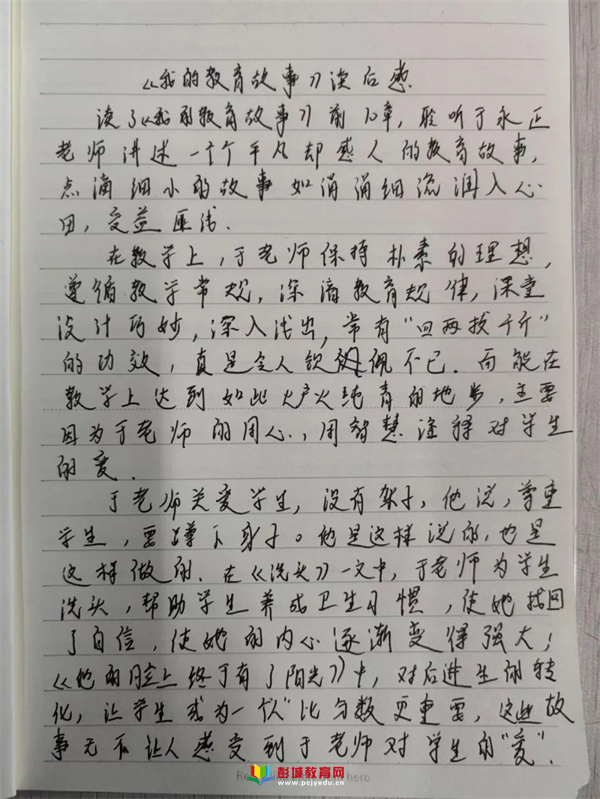 《我的教育故事》读后感
读了《我的教育故事》前10章，聆听于永正
老师讲述一个个平凡却感人的教育故事，
点滴细小的故事如涓涓细流润入心
田，受益匪浅.
在教学上，于老师保持朴素的理想，
遵循教学常规，深谙教育规律，课堂
设计巧妙，深入浅出，常有“四两拨千斤”
的功效，真是令人钦佩不已.而能在
教学上达到如此炉火纯青的地步，主要
因为于老师的用心，用智慧诠释对学生
的爱.
于老师关爱学生，没有架子，他说，尊重
学生，要蹲下身子。他是这样说的，也是
这样做的.在《洗头》一文中，于老师为学生
洗头，帮助学生养成卫生习惯，使她找回
了自信，使她的内心逐渐变得强大；
《他的脸上终于有了阳光》中，对后进生的转
化，让学生成为一个“人”比分数更重要，这些故
事无不让人感受到于老师对学生的“爱”.
彭城教育网
www.pcjyedu.cn
here